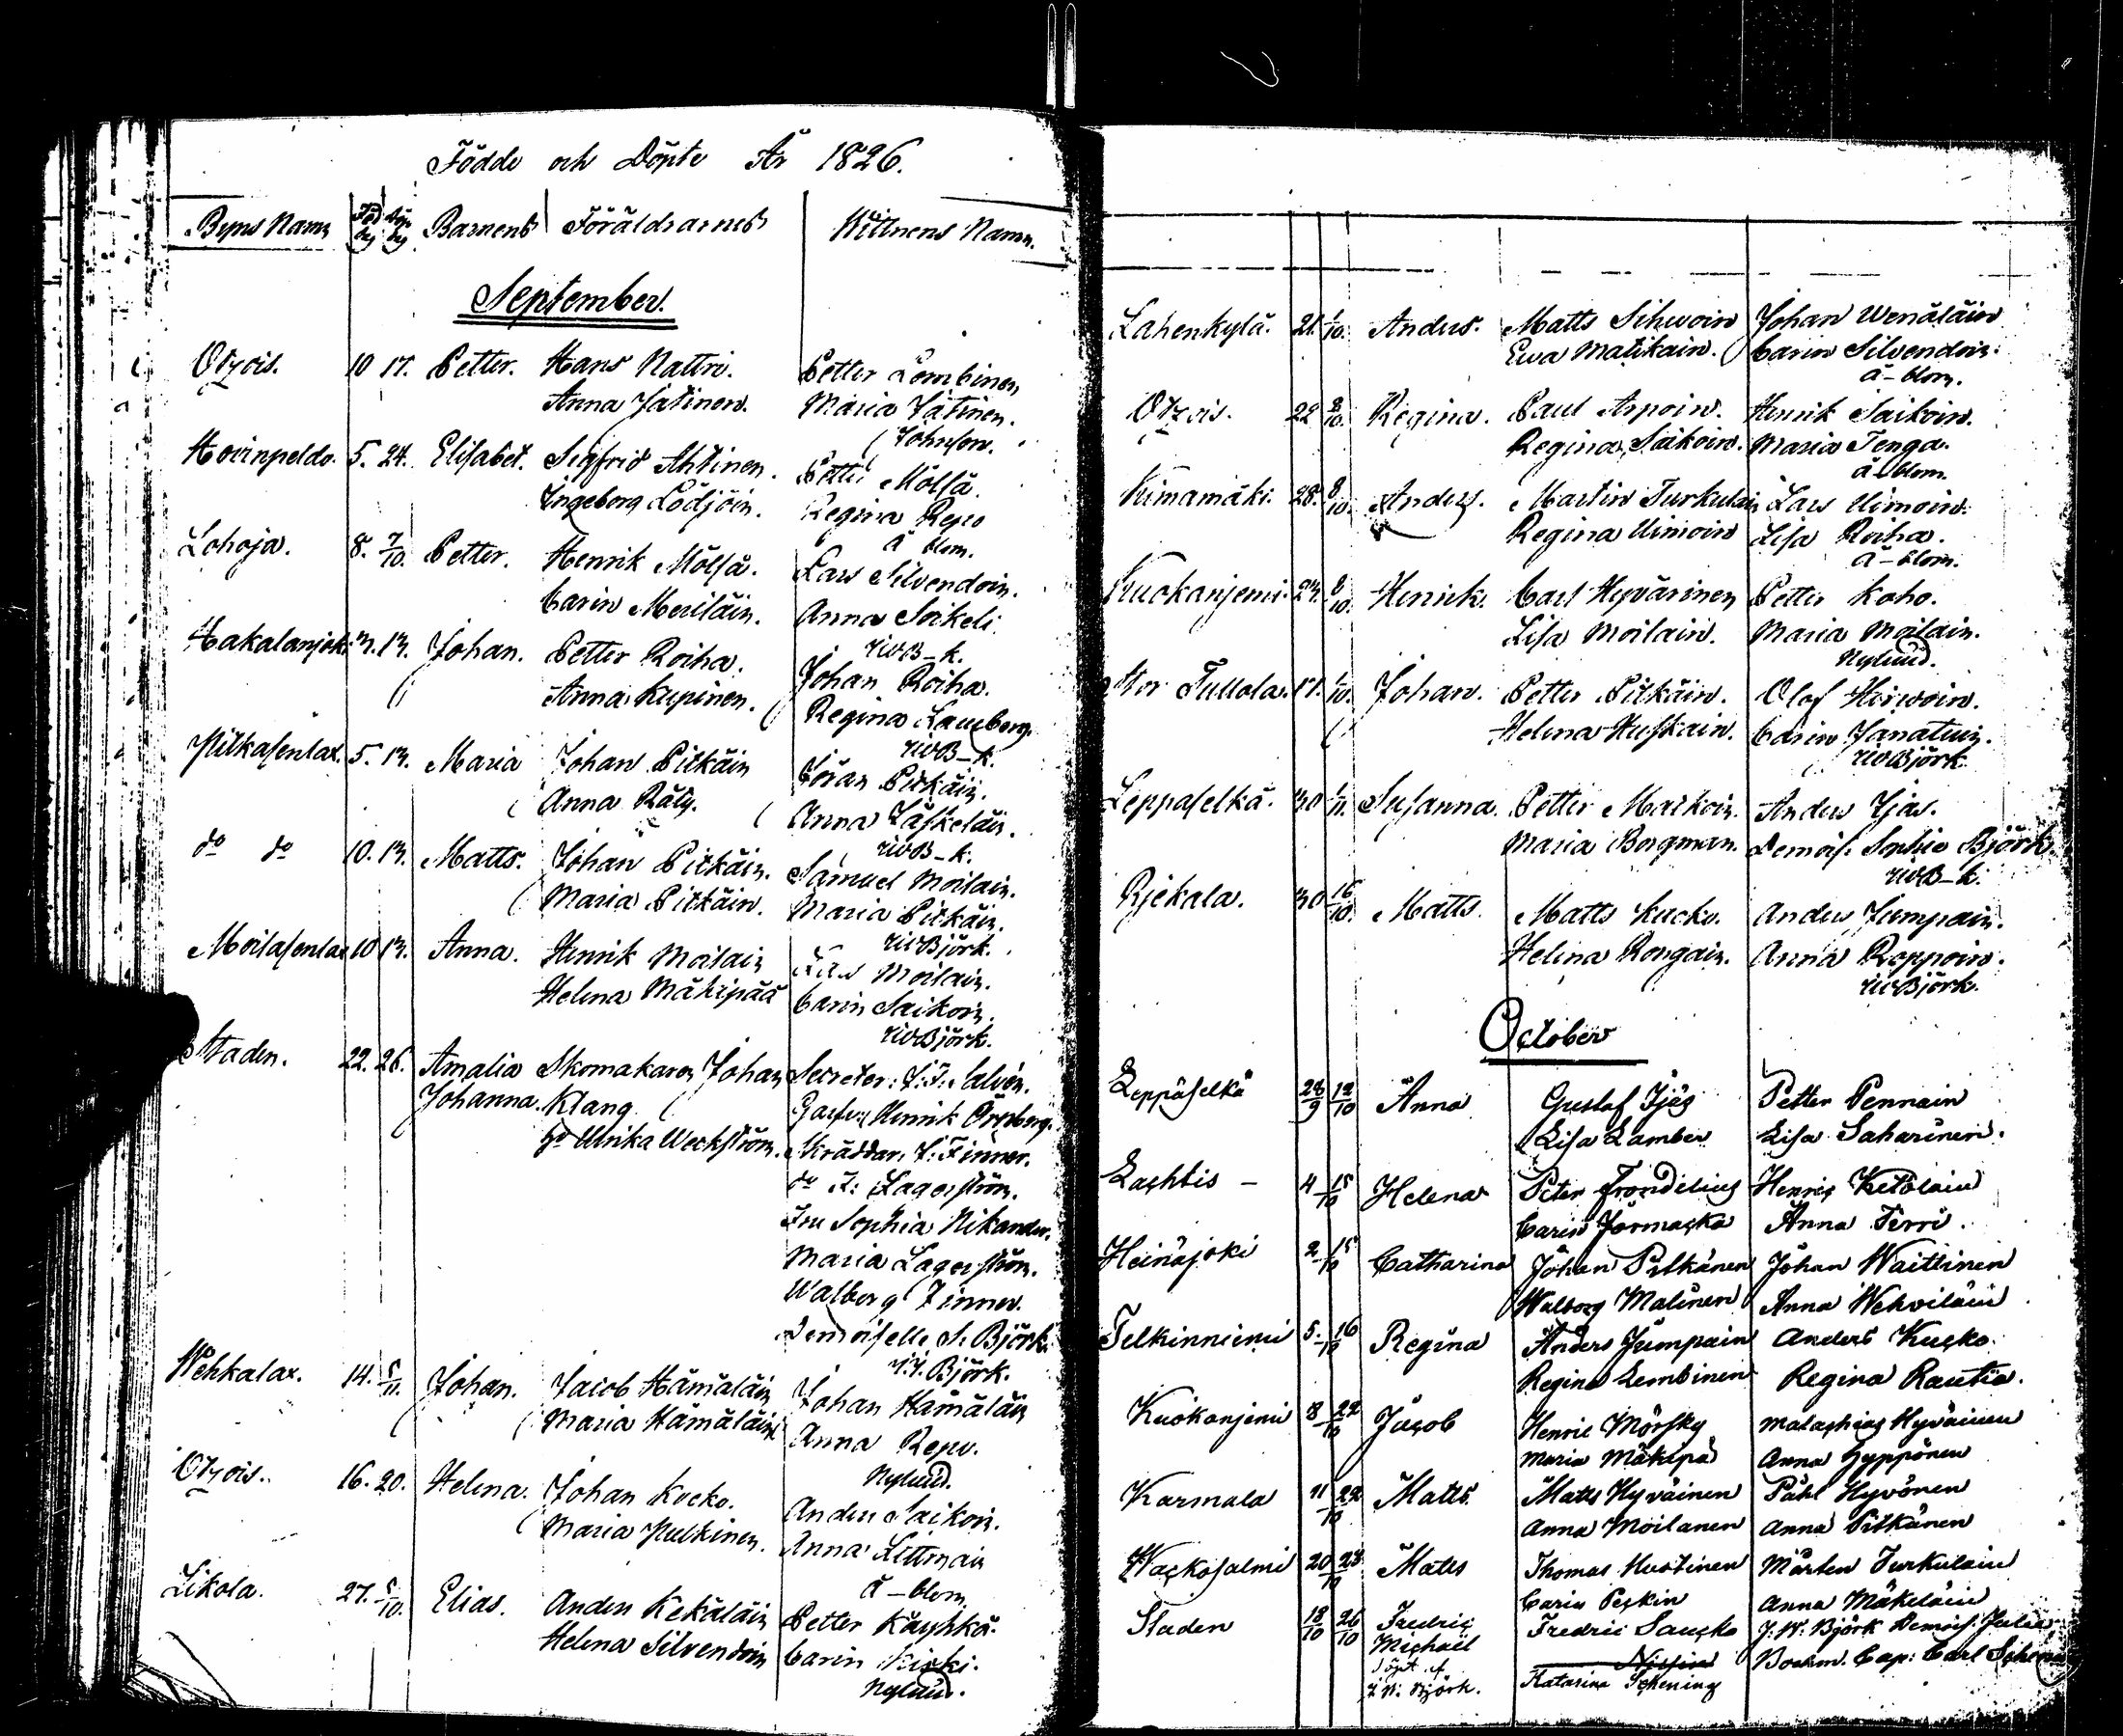 Födde och Döpte År 1826.
Byns Namn Föd dag Döp dag Barnens Föräldrarnes Wittnens Namn.
September.
Otzois. 10 17. Petter. Hans Nattri. Petter Lembinen
Anna Jatinen. Maria Jätinen.
Johnson.
Hovinpeldo. 5. 24. Elisabet. Sigfrid Ahtinen. Petter Mölsä.
Ingeborg Lödjöin. Regina Repo
ä blom.
Lohoja. 8. 7/10. Petter. Henrik Mölsä. Lars Silvendoin.
Carin Meriläin. Anna Soikeli
riwB-k.
Hakalanjoki. 3. 13. Johan. Petter Roiha. Johan Roiha.
Anna Kupinen. Regina Lamberg.
riwB-k.
Pitkasenlax. 5. 13. Maria Johan Pitkäin Jöran Pitkäin.
Anna Räty. Anna Jäskeläin.
riwB-k.
do do 10. 13. Matts. Johan Pitkäin. Samuel Moilain.
Maria Pitkäin. Maria Pitkäin.
riwBjörk.
Moilasenlax 10 13. Anna. Henrik Moilain Lars Moilain.
Helena Mäkipää Carin Saikoin.
riwBjörk.
Staden. 22. 26. Amalia Skomakaren Johan Secreter: J: F: Alvén.
Johanna. Klang Garfv: Henrik Örnberg.
h: Ulrika Weckström. Skräddar. J: Finner.
do F: Lagerström.
Fru Sophia Nikander.
Maria Lagerström.
Walborg Finner.
Demoiselle S. Björk.
Björk.
Wehkalax. 14. 5/11. Johan. Jacob Hämäläin Johan Hämäläin
Maria Hämäläin Anna Repo.
Nylund.
Otzois. 16. 20. Helena. Johan Kocko. Anders Saikoin.
Maria Hulkinen. Anna Littmain
ä-blom.
Likola. 27. 5/10. Elias. Anders Kekäläin Petter Käyhkä.
Helena Silvendoin Carin Kiski.
Nylund.
Lahenkylä. 21. 1/10. Anders. Matts Sihvoin Johan Wenäläin
Ewa Matikain. Carin Silvendoin.
ä-blom.
Otzois. 22 8/10. Regina. Paul Arpoin. Henrik Saikoin.
Regina Saikoin. Maria Tenga.
ä-blom.
Kimamäki. 28. 8/10. Anders. Martin Turkulain Lars Uimoin.
Regina Uimoin Lisa Roiha.
ä-blom.
Kuokanjemi. 24. 8/10. Henrik. Carl Hyvärinen Petter Koho.
Lisa Moilain. Maria Moilain.
Nylund.
Stor Tullola. 17. 1/10. Johan. Petter Pitkäin. Olof Hirwoin.
Helena Huskain. Carin Janatuin.
riwBjörk
Leppaselkä. 30 1/11. Susanna. Petter Maikoin. Anders Ijäs.
Maria Borgman. Demois: Sophia Björk.
riwB-k.
Rjekala. 30 16/10. Matts. Matts Kucko. Anders Jumpain.
Helena Rongain. Anna Roppoin.
riwBjörk.
October
Leppäselkä 28/9 12/10 Anna Gustaf Ijäs Petter Pennain
Lisa Lamber Lisa Saharinen.
Lachtis - 4 15/10 Helena Peter Frondelius Henric Ketolain
Carin Jormacka Anna Terri.
Heinäjoki 2 15/10 Catharina Johan Pitkänen Johan Waittinen
Walborg Malinen Anna Wehviläin
Telkinniemi 5. 16/10 Regina Anders Jumpain Anders Kucko.
Regina Lembinen Regina Rautia.
Kuokanjemi 8 22/10 Jacob Henric Mörsky Malachias Hyväinen
Maria Mäkipä Anna Hyppönen
Karmala 11 22/10 Matts. Matts Hyväinen Påhl Hyvönen
Anna Moilanen Anna Pitkänen
Wackosalmi 20 23/10 Matts Thomas Mustinen Mårten Turkulain
Carin Peckin Anna Mäkeläin
Staden 18/10 26/10 Fredric Fredric Saucko J. W. Björk Demois. Julia
Michaël Boehm. Cap: Carl
Döpt af Katarina Schening
J. W. Björk.